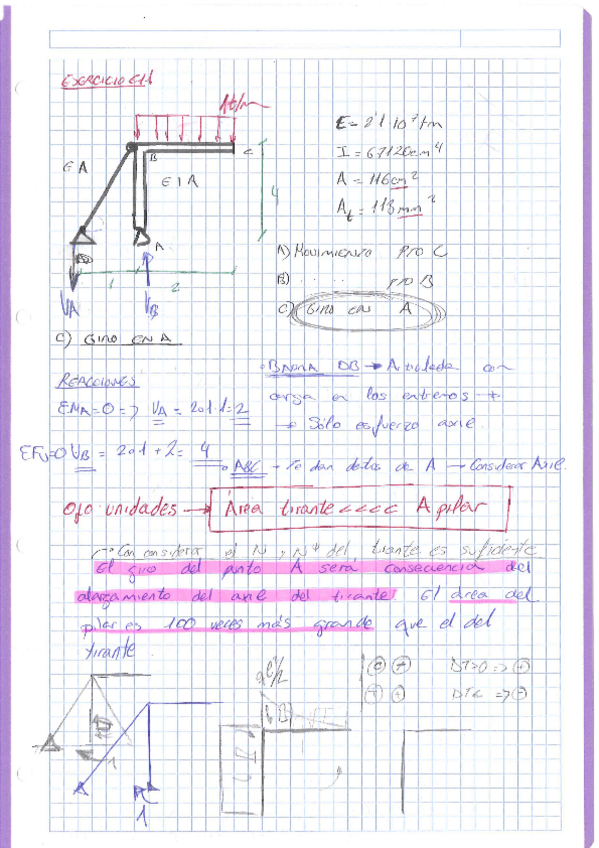 EJERCICIO E11
1t/m
E = 2'1·10⁷ t/m
I = 67120cm⁴
A = 116cm²
At = 113mm²
EA
B
C
EIA
4
A
1
2
VA
VB
A) Movimiento pto C
B) ........ pto B
C) Giro en A
C) GIRO EN A
REACCIONES
ΣMA=0 => VA = 2·1·1=2
ΣFv=0 VB = 2·1+2= 4
· BARRA DB → Articulada con
carga en los extremos →
→ Sólo esfuerzo axil.
· ABC → Te dan datos de A → Considerar Axil.
Ojo unidades → Área tirante <<<< A pilar
→ Con considerar el N y N* del tirante es suficiente
El giro del punto A será consecuencia del
alargamiento del axil del tirante. El área del
pilar es 100 veces más grande que el del
tirante.
1
1